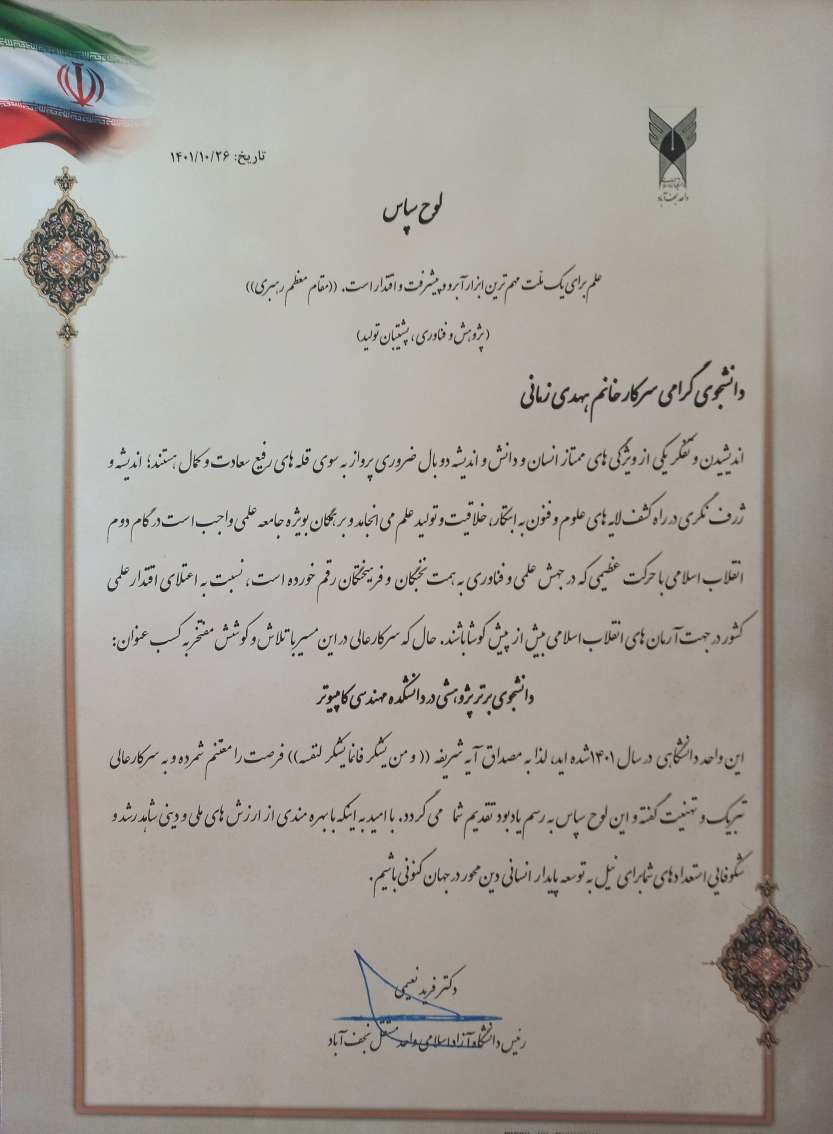 تاریخ: ۱۴۰۱/۱۰/۲۶
واحد نجف آباد
لوح سپاس
علم برای یک ملّت مهم ترین ابزار آبرو و پیشرفت و اقتدار است. ((مقام معظم رهبری))
(پژوهش و فناوری، پشتیبان تولید)
دانشجوی گرامی سرکار خانم مهدی زمانی
اندیشیدن و تفکر یکی از ویژگی های ممتاز انسان و دانش و اندیشه دو بال ضروری پرواز به سوی قله های رفیع سعادت و کمال هستند؛ اندیشه و
ژرف نگری در راه کشف لایه های علوم و فنون به ابتکار، خلاقیت و تولید علم می انجامد و بر همگان بویژه جامعه علمی واجب است در گام دوم
انقلاب اسلامی با حرکت عظیمی که در جهش علمی و فناوری به همت نخبگان و فرهیختگان رقم خورده است، نسبت به اعتلای اقتدار علمی
کشور در جهت آرمان های انقلاب اسلامی بیش از پیش کوشا باشند. حال که سرکارعالی در این مسیر با تلاش و کوشش مفتخر به کسب عنوان:
دانشجوی برتر پژوهشی در دانشکده مهندسی کامپیوتر
این واحد دانشگاهی در سال ۱۴۰۱ شده اید، لذا به مصداق آیه شریفه ((و من یشکر فانما یشکر لنفسه)) فرصت را مغتنم شمرده و به سرکارعالی
تبریک و تهنیت گفته و این لوح سپاس به رسم یادبود تقدیم شما می گردد. با امید به اینکه با بهره مندی از ارزش های ملی و دینی شاهد رشد و
شکوفایی استعدادهای شما برای نیل به توسعه پایدار انسانی دین محور در جهان کنونی باشیم.
دکتر فرید نعیمی
رئیس دانشگاه آزاد اسلامی واحد مستقل نجف آباد